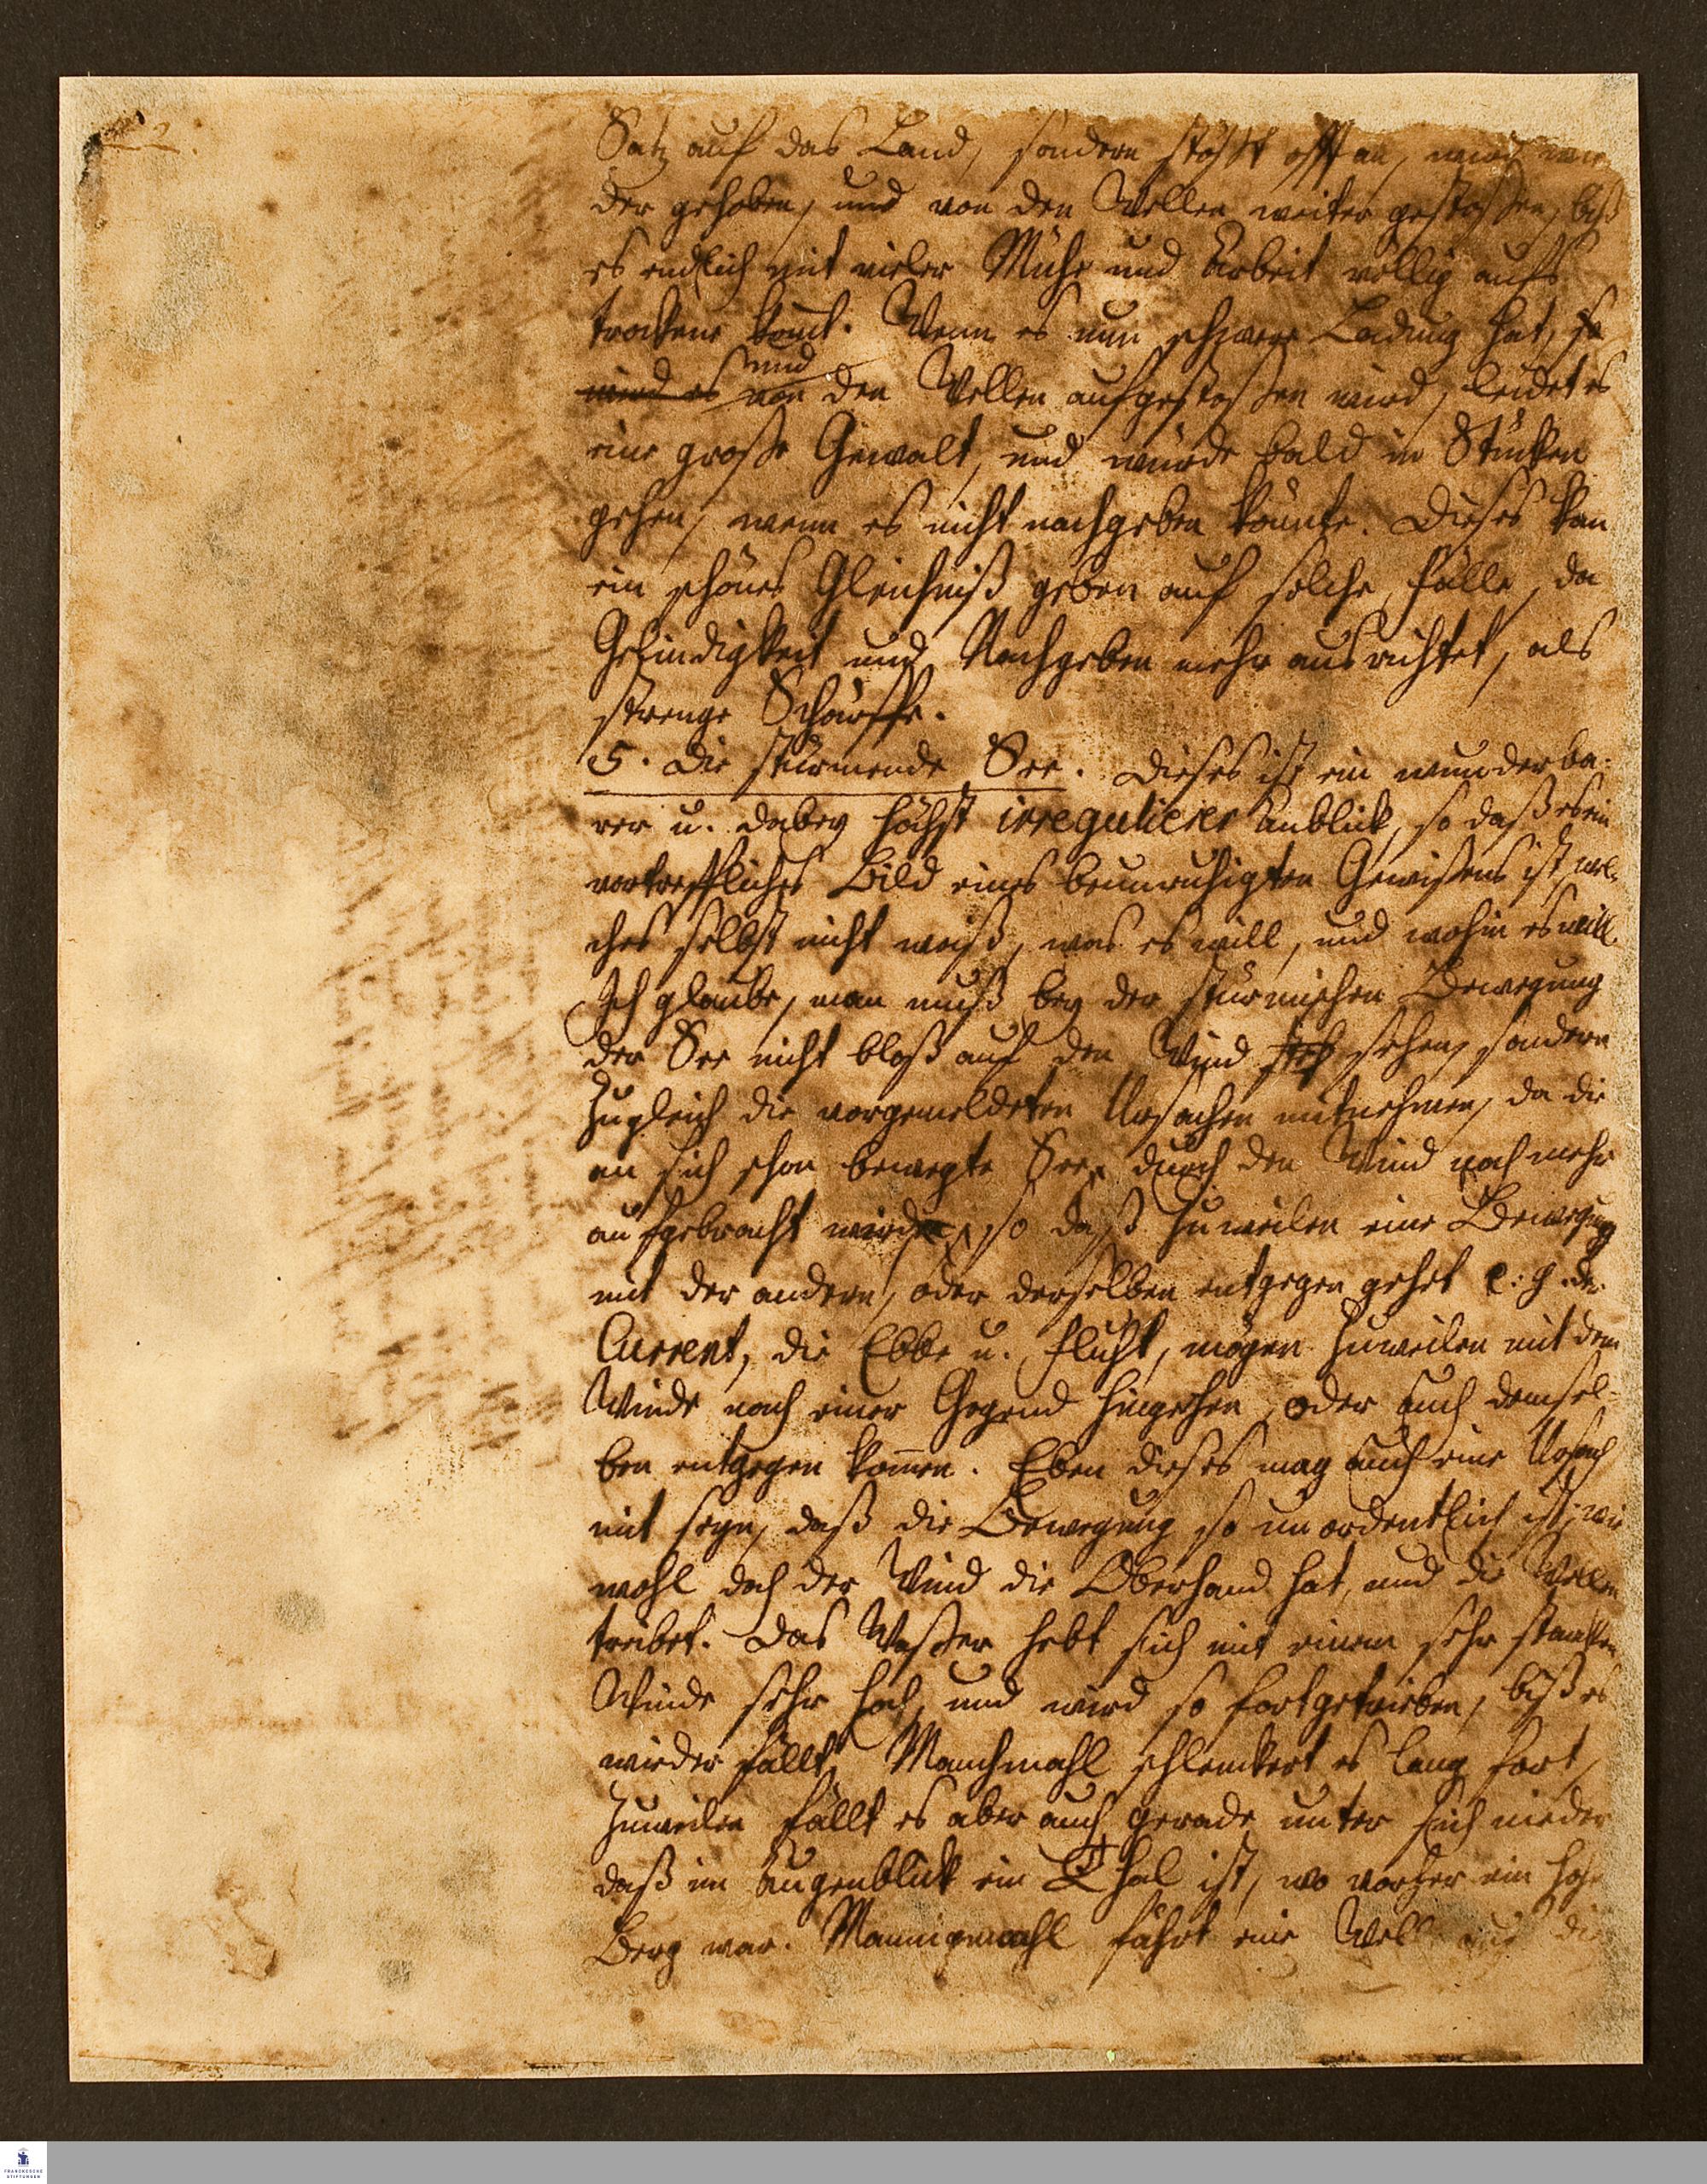 Satz auf das Land, sondern stößt offt an, wird wie
der gehoben, und von den Wellen weiter gestoßen, biß
es endlich mit vieler Mühe und Arbeit völlig aufs
trockene komt. Wenn es nun schwere Ladung hat, so
und
wird es von den Wellen aufgestoßen wird, leidet es
eine große Gewalt, und würde bald in Stücken
gehen, wenn es nicht nachgeben könnte. Dieses kan
ein schönes Gleichniß geben auf solche Fälle, da
Gelindigkeit und Nachgeben mehr ausrichtet, als
strenge Schärffe.
5. Die stürmende See. Dieses ist ein wunderba-
rer u. dabey höchst irregulierer Anblick, so daß es ein
vortreffliches Bild eines beunruhigten Gewißens ist, wel-
ches selbst nicht weiß, was es will, und wohin es will.
Ich glaube, man muß bey der stürmischen Bewegung
der See nicht bloß auf den Wind sehen, sondern
zugleich die vorgemeldeten Ursachen mitnehmen, da die
an sich schon bewegte See durch den Wind noch mehr
aufgebracht wird, so daß zuweilen eine Bewegung
mit der andern, oder derselben entgegen gehet e. g. der
Current, die Ebbe u. Fluht, mögen zuweilen mit dem
Winde nach einer Gegend hingehen, oder auch demsel-
ben entgegen kommen. Eben dieses mag auch eine Ursach
mit seyn, daß die Bewegung so unordentlich ist, wie
wohl doch der Wind die Oberhand hat, und die Wellen
treibet. Das Waßer hebt sich mit einem sehr starken
Winde sehr hoch, und wird so fortgetrieben, biß es
wieder fällt. Manchmahl schlenckert es lang fort,
zuweilen fällt es aber auch gerade unter sich nieder
daß im Augenblick ein Thal ist, wo vorher ein hoher
Berg war. Mannigmahl fährt eine Well aus die